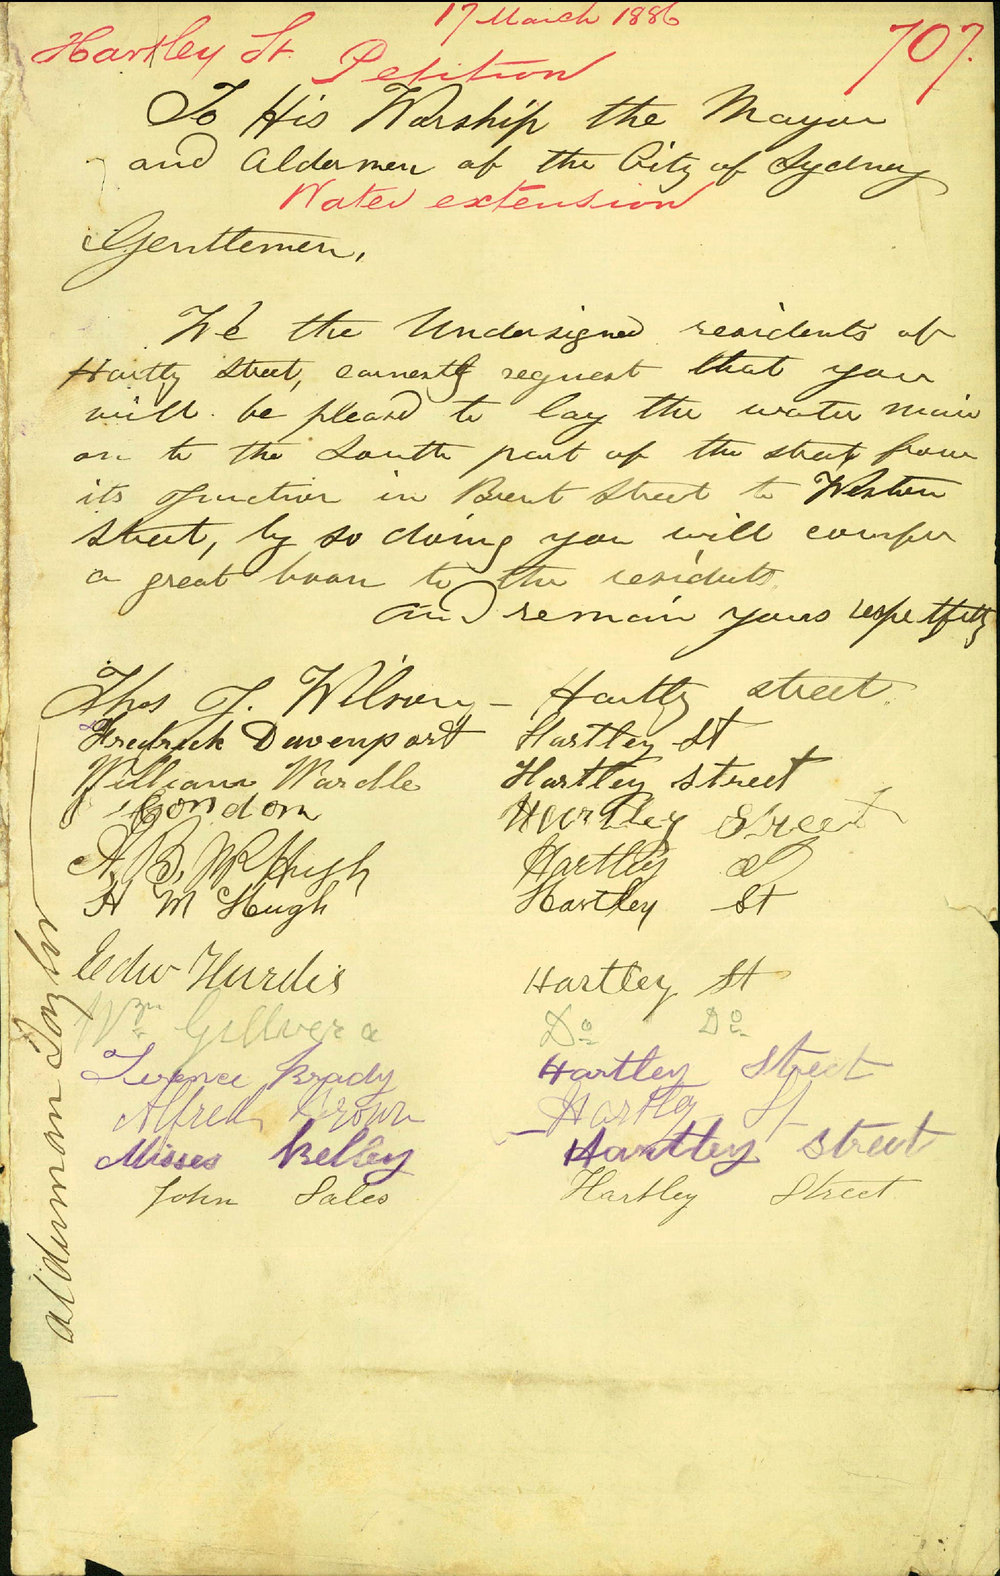 17 March 1886
Hartley St. Petition
707.
To His Warship the Mayor
and Aldermen of the City of Sydney
Water extension
Gentlemen,
We the Undersigned residents of
Hartly Street, earnestly request that you
will be pleasd to lay the water main
on to the South part of the street from
its Junction in Brent Street to Weston
Street, by so doing you will confer
a great boon to the residents
and remain yours respectfully
Thos J. Wilson - Hartly street.
Fredrick Davenport Hartley St
William Wardle Hartley Street
J Condon Hartley Street
A. B. McHugh Hartley St
H Mc Hugh Hartley St
Edw Hurdis Hartley St
Wm Do Do
Terence Brady Hartley Street
Alfred Brown Hartley St
Misses Kelley Hartley Street
John Sales Hartley Street
alderman Taylor